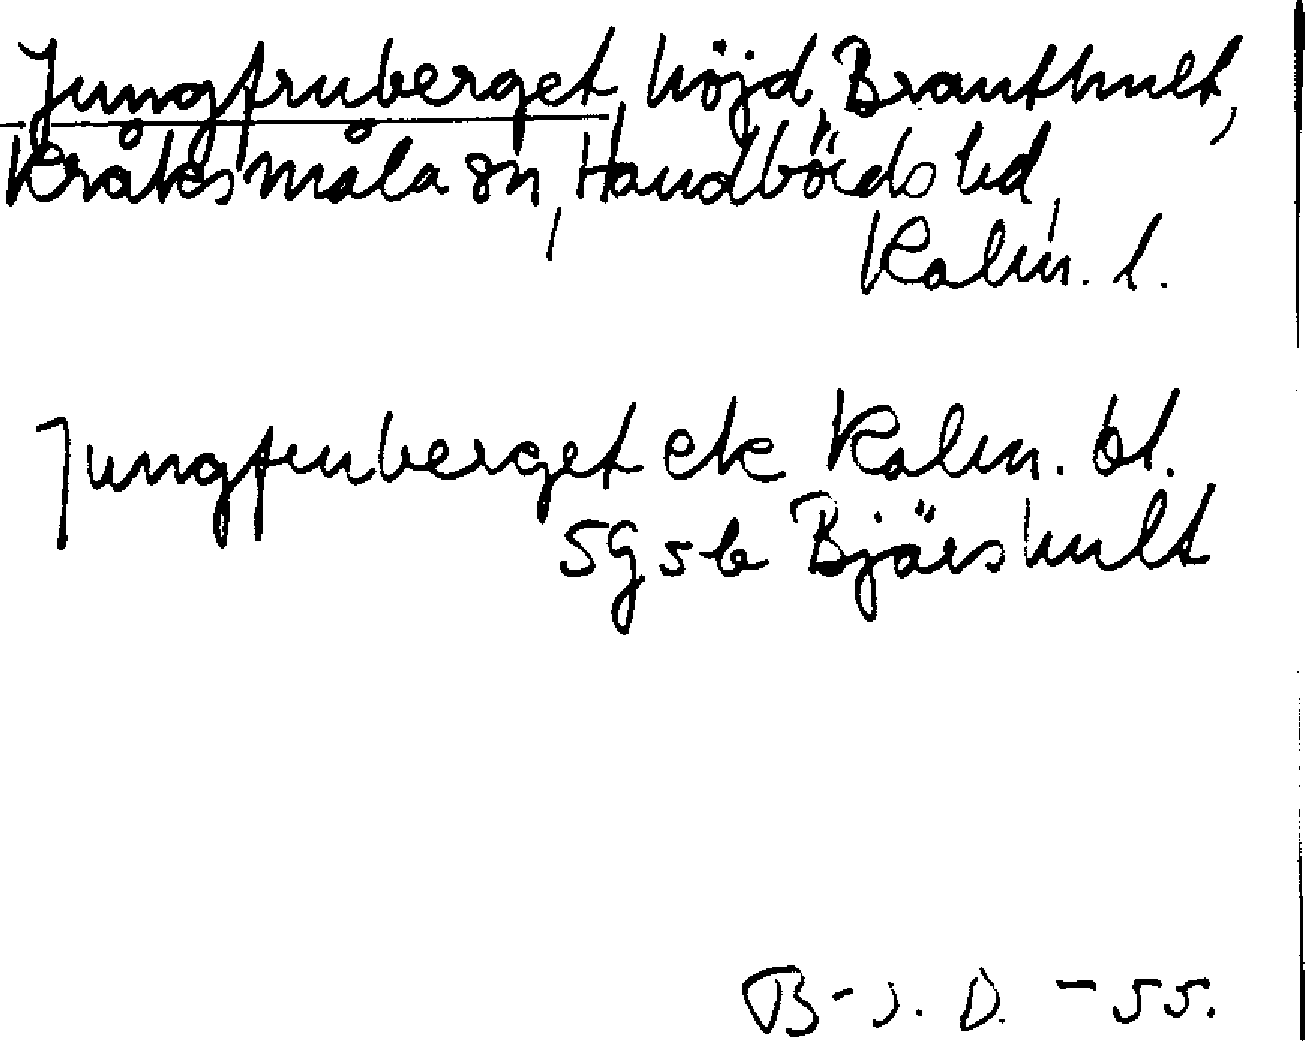 Jungfruberget, höjd, Branthult,
Kråksmåla sn, Handbörds hd,
Kalm. l.
Jungfruberget ek Kalm. bl.
5g5b Bjärshult
B-J. D. -55.